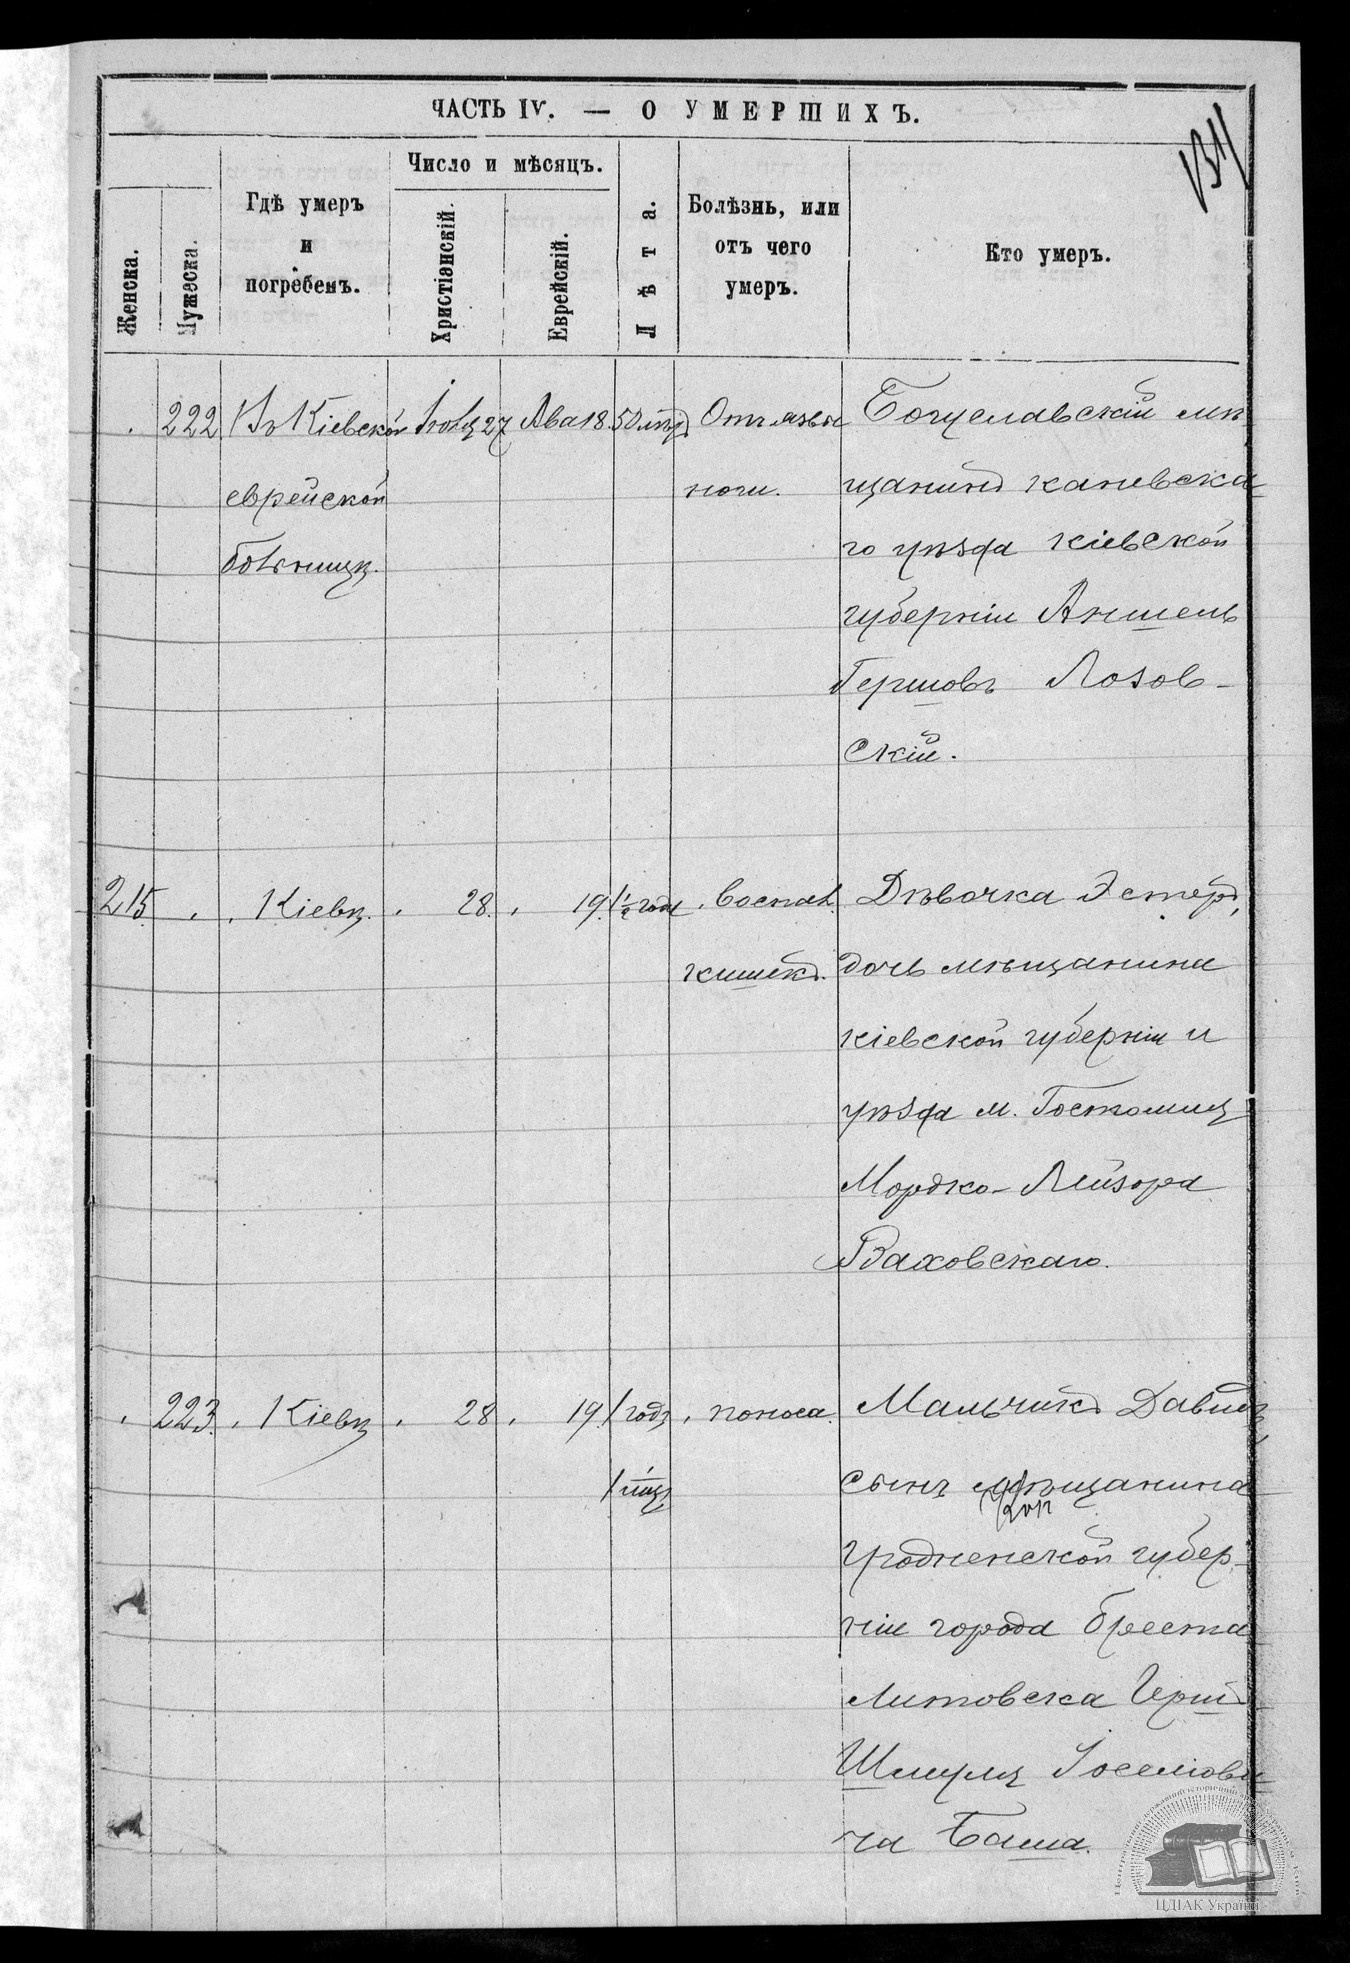 ЧАСТЬ IV. — О УМЕРШИХЪ.
Женска.
Мужеска.
Гдѣ умеръ
и
погребенъ.
Число и мѣсяцъ.
Христіанскій.
Еврейскій.
Лѣта.
Болѣзнь, или
отъ чего
умеръ.
Кто умеръ.
222 Въ Кіевской Іюля 27 Ава 18 50 лѣтъ Отъ язвы Богуславскій мѣ
еврейской ноги. щанинъ каневска
больницѣ. го уѣзда Кіевской
губерніи Аншель
Гершовъ Лозов-
скій.
215 Кіевѣ 28 19 1/2 года воспал. Дѣвочка Эстеръ,
кишекъ. дочь мѣщанина
кіевской губерніи и
уѣзда м. Гостомля
Мордко-Лейзора
Ваховскаго.
223 Кіевѣ 28 19 1 годъ поноса Мальчикъ Давидъ,
1 мѣц. сынъ мѣщанина
гродненской губер-
ніи города Бреста
Литовска Герш
Шмуля Іоселіови
ча Баша.
ЦДІАК України